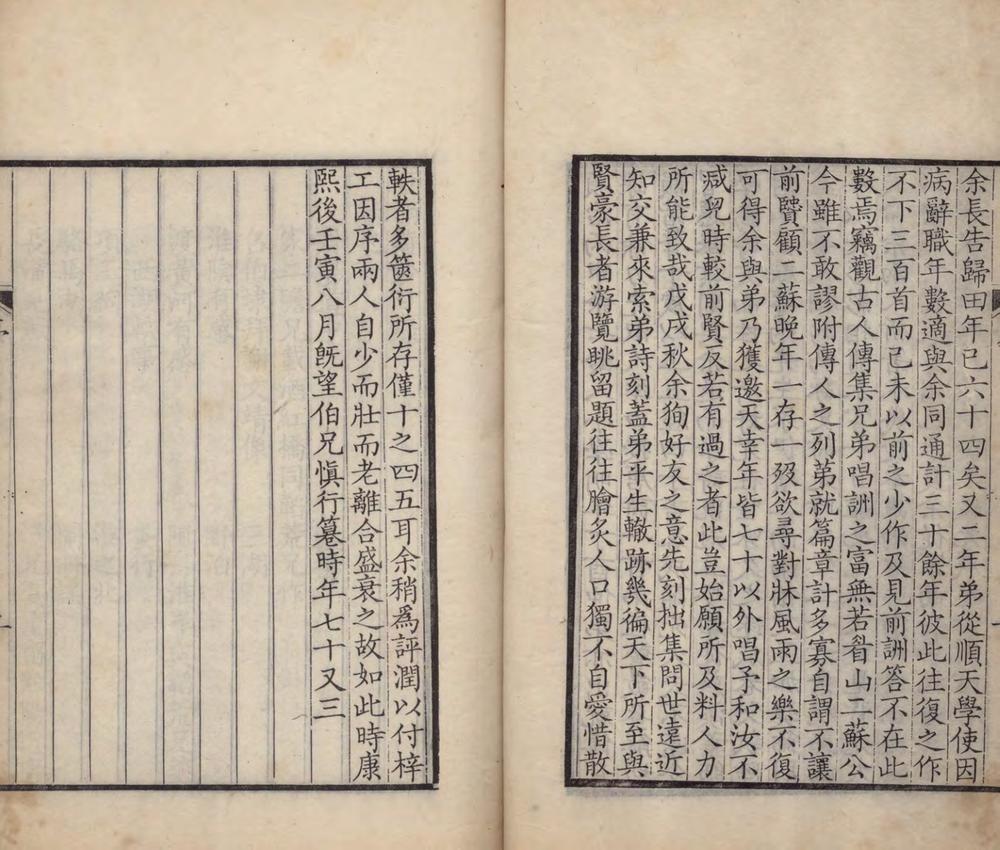 余長告歸田年已六十四矣又二年弟從順天學使因
病辭職年數適與余同通計三十餘年彼此往復之作
不下三百首而己未以前之少作及見前詶答不在此
數焉竊觀古人傳集兄弟唱詶之富無若眉山二蘇公
今雖不敢謬附傳人之列弟就篇章計多寡自謂不讓
前賢顧二蘇晚年一存一歿欲尋對牀風雨之樂不復
可得余與弟乃獲邀天幸年皆七十以外唱予和汝不
減兒時較前賢反若有過之者此豈始願所及料人力
所能致哉戊戌秋余狥好友之意先刻拙集問世遠近
知交兼來索弟詩刻蓋弟平生轍跡幾徧天下所至與
賢豪長者游覽眺留題往往膾炙人口獨不自愛惜散
軼者多篋衍所存僅十之四五耳余稍爲評潤以付梓
工因序兩人自少而壯而老離合盛衰之故如此時康
熙後壬寅八月旣望伯兄愼行篹時年七十又三